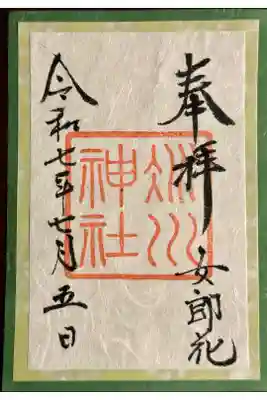 奉拝 女郎花
令和七年七月五日
川
神社